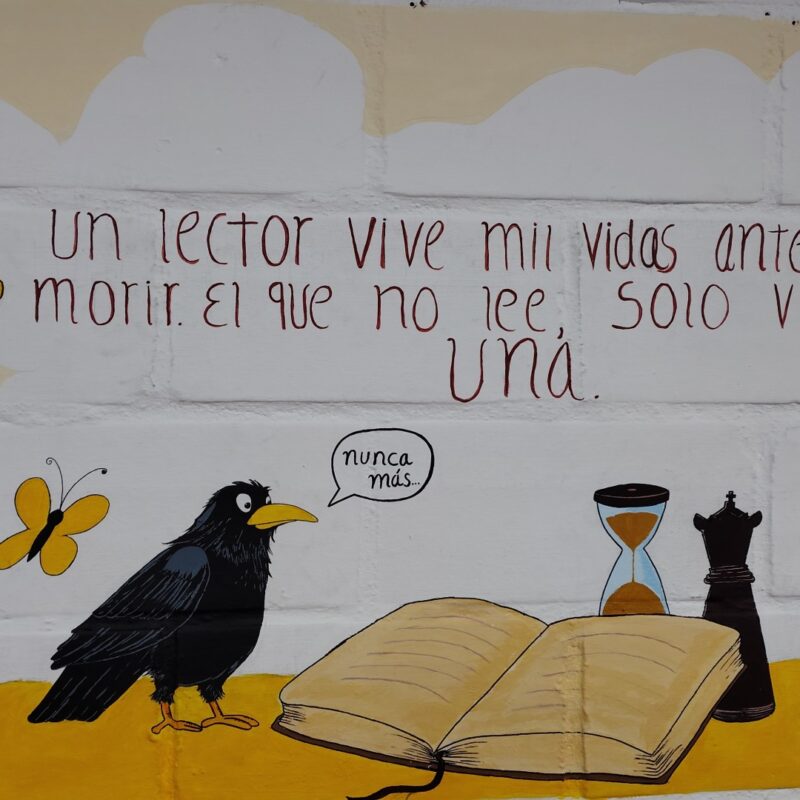 un lector vive mil vidas ante
morir. El que no lee, solo v
una.
nunca
más...